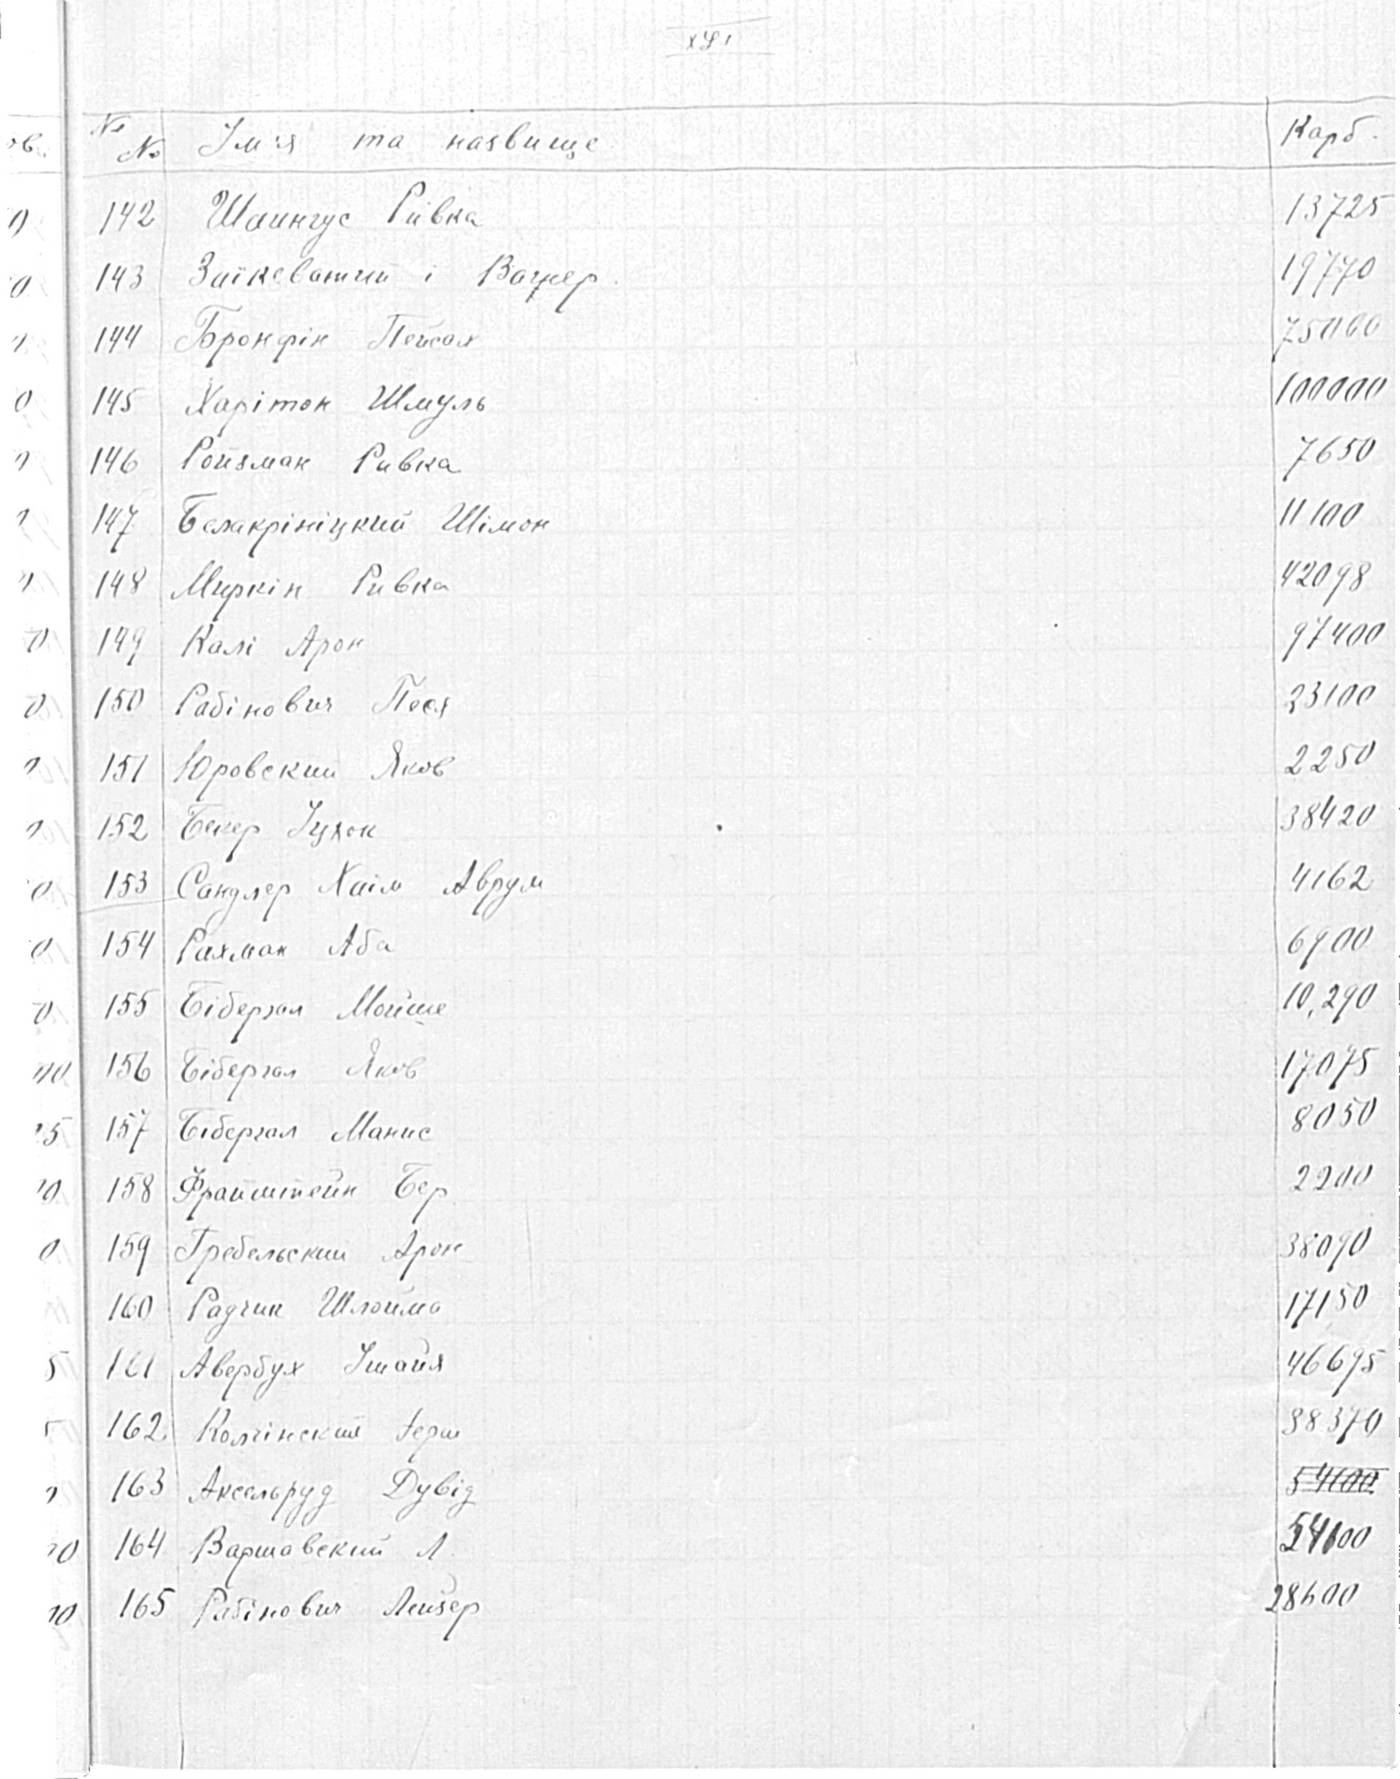 № № Ім'я та назвище Карб.
142 Шаингус Рівка 13725
143 Заїкеватий і Вацнер. 19770
144 Бронфін Пейсах 75000
145 Харітон Шмуль 100000
146 Ройзман Ривка 7650
147 Белакрініцкий Шімон 11100
148 Миркін Ривка 42098
149 Калі Арон 97400
150 Рабінович Песя 23100
151 Юровский Яков 2250
152 Бекер Іцхок 38420
153 Сандлер Хаім Аврум 4162
154 Рахман Аба 6900
155 Бібергал Мойше 10,290
156 Бібергал Яков 17075
157 Бібергал Манис 8050
158 Фраймтейн Бер 2200
159 Гребельский Арон 38090
160 Радчик Шлойма 17150
161 Авербух Ішайя 46695
162 Колчінский Герш 38370
163 Аксельруд Дувід 54100
164 Варшавский Л. 54100
165 Рабінович Лейзер 28600